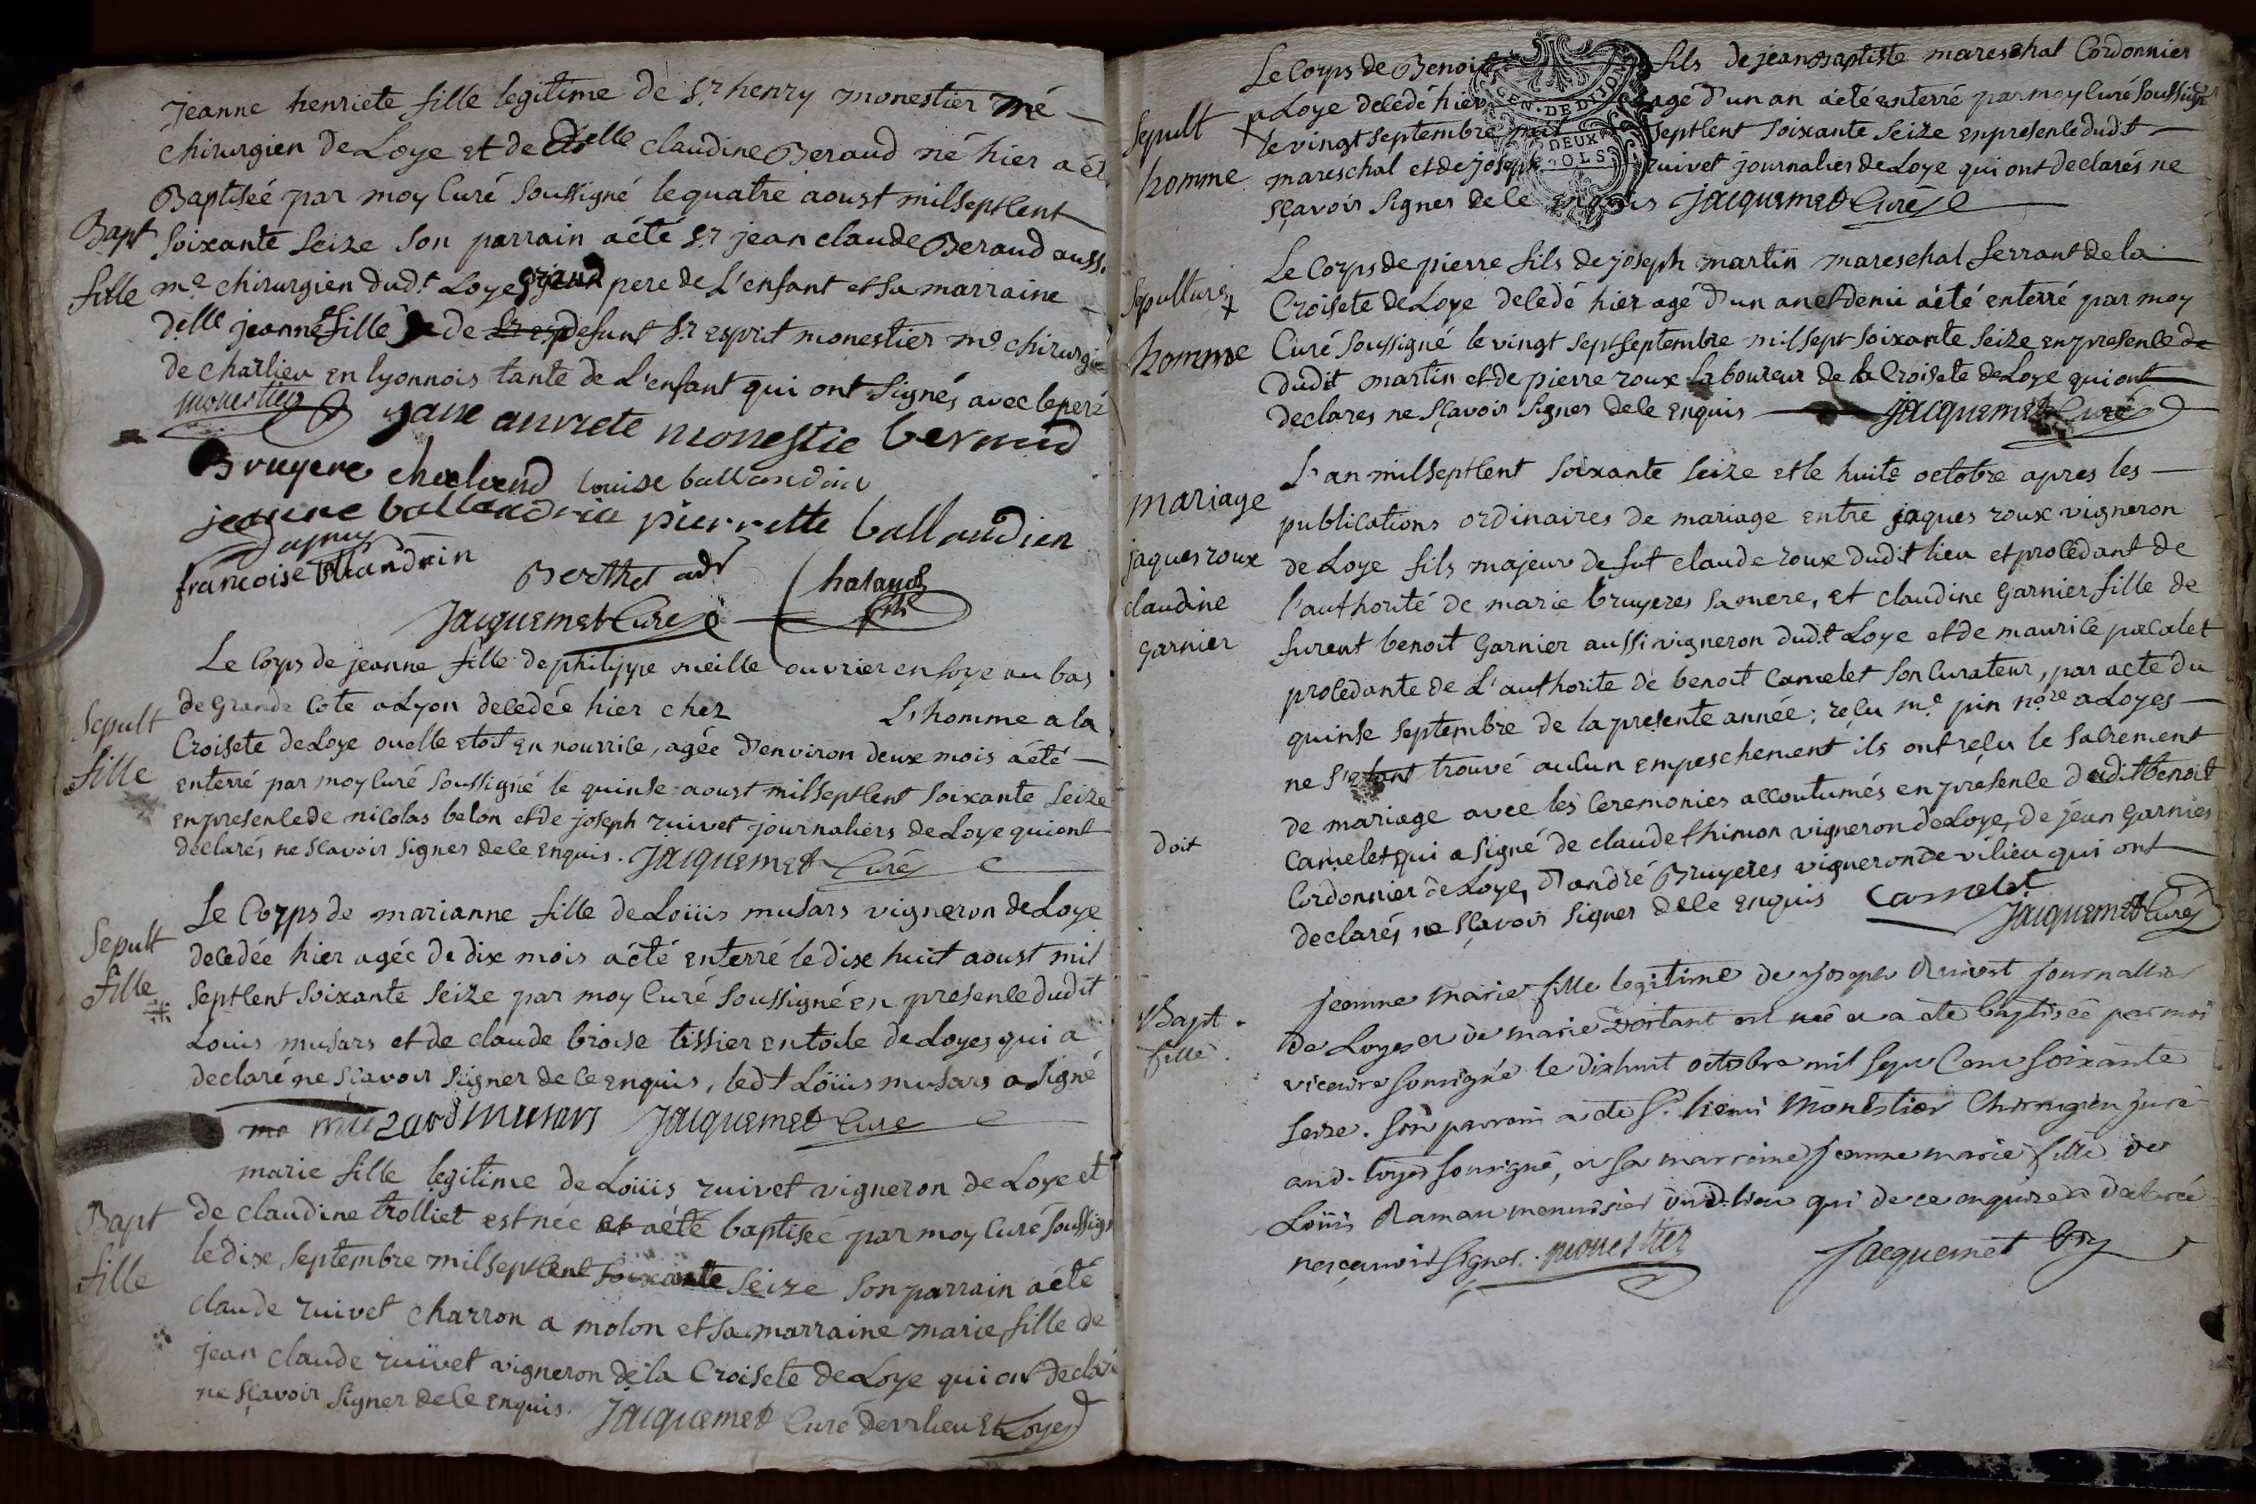 jeanne henriete fille legitime de Sr. henry monestier mé
chirurgien de Loye et de delle claudine Beraud né hier a ét
Baptiséé par moy Curé Soussigné le quatre aoust mil sept Cent
Bapt
fille
Soixante Seize Son parrain a été Sr jean claude Beraud aussi
me. chirurgien dudt. Loye grand pere de L'enfant et sa marraine
delle jeanne fille de defunt Sr esprit monestier me chirurgie
de charlieu en lyonnois tante de L'enfant qui ont Signés avec le peré
monestier
jane anriete monestie beraud
Bruyere chaland louise ballandrin
jeanne ballandrin pierrette ballandien
francoise
Berthet
chaland fils
Jacquemet Curé
Sepult
fille
Le Corps de jeanne fille de philippe vieille ouvrier en Soye au bas
de Grande Cote a Lyon decedéé hier chez L'homme a la
Croisete de Loye ou elle etoit en nourrice, agée d'environ deux mois a été
enterré par moy Curé Soussigné le quinse aoust mil sept Cent Soixante Seize
en presence de nicolas belon et de joseph ruivet journaliers de Loye qui ont
declarés ne Scavoir Signer de Ce enquis. Jacquemet Curé
Sepult
fille
Le Corps de marianne fille de Loüis musars vigneron de Loye
decedée hier agée de dix mois a été enterré le dix huit aoust mil
Sept Cent Soixante Seize par moy Curé Soussigné en presence dudit
Louis musars et de claude broise tissier en toile de Loyes qui a
declaré ne Scavoir Signer de Ce enquis, ledt Loüis musars a Signé
musars Jacquemet Curé
Bapt
fille
marie fille legitime de Loüis ruivet vigneron de Loye et
de claudine trolliet est née et a été baptisée par moy Curé Soussign
le dix Septembre mil Sept Cent Soixante Seize Son parrain a été
claude ruivet charron a molon et sa marraine marie fille de
jean claude ruivet vigneron de la Croisete de Loye qui ont declaré
ne Sçavoir Signer de Ce enquis. Jacquemet Curé de vilieu et Loyes
GEN. DE DIJON
DEUX
SOLS
Sepult
homme
Le Corps de Benoit fils de jean Baptiste mareschal Cordonnier
a Loye decedé hier agé d'un an a été enterré par moy Curé Soussigné
le vingt Septembre mil Sept Cent Soixante Seize en presence dudit
mareschal et de joseph ruivet journalier de Loye qui ont declarés ne
Sçavoir Signer de Ce enquis Jacquemet Curé
Sepulture
homme
Le Corps de pierre fils de joseph martin mareschal ferrant de la
Croisete de Loye decedé hier agé d'un an et demi a été enterré par moy
Curé Soussigné le vingt Sept Septembre mil sept Soixante Seize en presence de
dudit martin et de pierre roux Laboureur de la Croisete de Loye qui ont
declares ne Sçavoir Signer de Ce enquis Jacquemet Curé
mariage
jaques roux
claudine
garnier
L'an mil Sept Cent Soixante Seize et le huite octobre apres les
publications ordinaires de mariage entre jaques roux vigneron
de Loye fils majeur de fut claude roux dudit lieu et procedant de
l'authorité de marie bruyeres sa mere, et claudine Garnier fille de
furent benoit Garnier aussi vigneron dudt Loye et de maurice pacalet
procedante de L'authorite de benoit Camelet Son Curateur, par acte du
quinse Septembre de la presente année; reçu me. pin nore a Loyes
ne S'etant trouvé aucun empeschement ils ont reçu le Sacrement
de mariage avec les Ceremonies accoutumés en présence dudit benoit
doit
Camelet qui a Signé de claude thimon vigneron de Loye, de jean Garnier
Cordonnier de Loye, d'andré Bruyeres vigneron de vilieu qui ont
declarés ne Sçavoir Signer de Ce enquis Camelet
Jacquemet Curé
Bapt.
fille.
Jeanne Marie fille legitime de Joseph Ruivet Journallier
de Loyes et de marie est née et a eté baptisée par moi
vicaire Sousigné le dixhuit octobre mil Sept Cent Soixante
Seize. Son parrain a eté Sr. henri Monestier Chirurgien juré
aud. loyes Sousigné, et Sa marraine Jeanne marie fille de
Loüis Raman menuisier dud. lieu qui de ce enquise a declaré
ne sçavoir Signer. Monestier Jacquemet